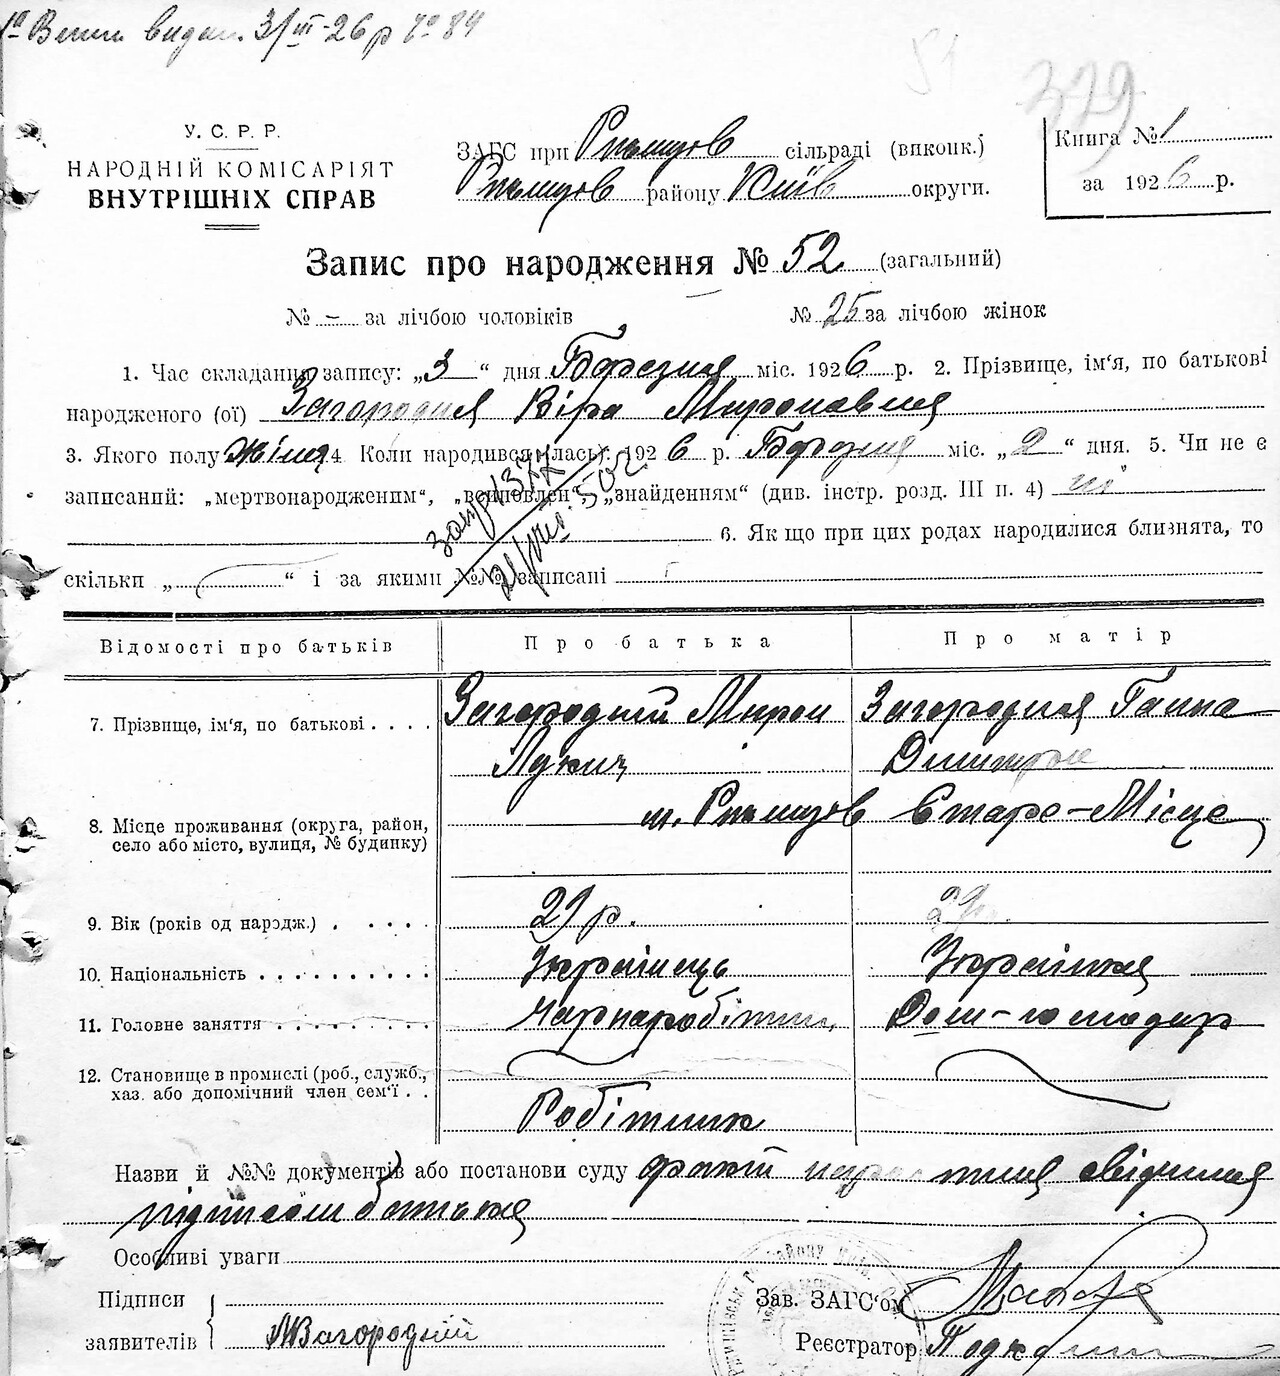 видан. 3/III-26 р № 84
379
У. С. Р. Р.
НАРОДНІЙ КОМІСАРІЯТ
ВНУТРІШНІХ СПРАВ
ЗАГС при Ржищов сільраді (виконк.)
Ржищов району Київ округи.
Книга № 1
за 1926 р.
Запис про народження № 52 (загальний)
№ – за лічбою чоловіків № 25 за лічбою жінок
1. Час складання запису: „3“ дня Березня міс. 1926 р. 2. Прізвище, ім‘я, по батькові
народженого (ої) Загородня Віра Миронавня
3. Якого полу жіноч 4 Коли народився (лась): 1926 р. Березня міс. „2“ дня. 5. Чи не є
записаний: „мертвонародженим“, „ „знайденням“ (див. інстр. розд. III п. 4) ні
6. Як що при цих родах народилися близнята, то
скільки „ “ і за якими №№ записані
Відомості про батьків Про батька Про матір
7. Прізвище, ім‘я, по батькові . . . . Загородній Мирон Загородня Ганна
Лукич Дмитров
8. Місце проживання (округа, район, м. Ржищов Старе-Місце
село або місто, вулиця, № будинку)
9. Вік (років од народж.) . . . . . 29 р. 29
10. Національність . . . . . . . . . Українець Українка
11. Головне заняття . . . . . . . . . Чорноробітник Дом-господар
12. Становище в промислі (роб., служб.,
хаз. або допомічний член сем‘ї . .
Робітник
Назви й №№ документів або постанови суду
підписом батька
Особливі уваги
Підписи
заявителів МЗагородній
Зав. ЗАГС‘ом
Реєстратор